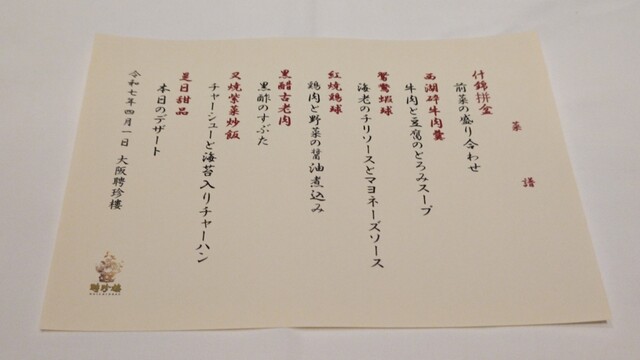 菜譜
什錦拼盆
前菜の盛り合わせ
西湖碎牛肉羹
牛肉と豆腐のとろみスープ
鴛鴦蝦球
海老のチリソースとマヨネーズソース
紅焼鶏球
鶏肉と野菜の醤油煮込み
黒醋古老肉
黒酢のすぶた
叉焼紫菜炒飯
チャーシューと海苔入りチャーハン
是日甜品
本日のデザート
令和七年四月一日 大阪聘珍樓
聘珍樓